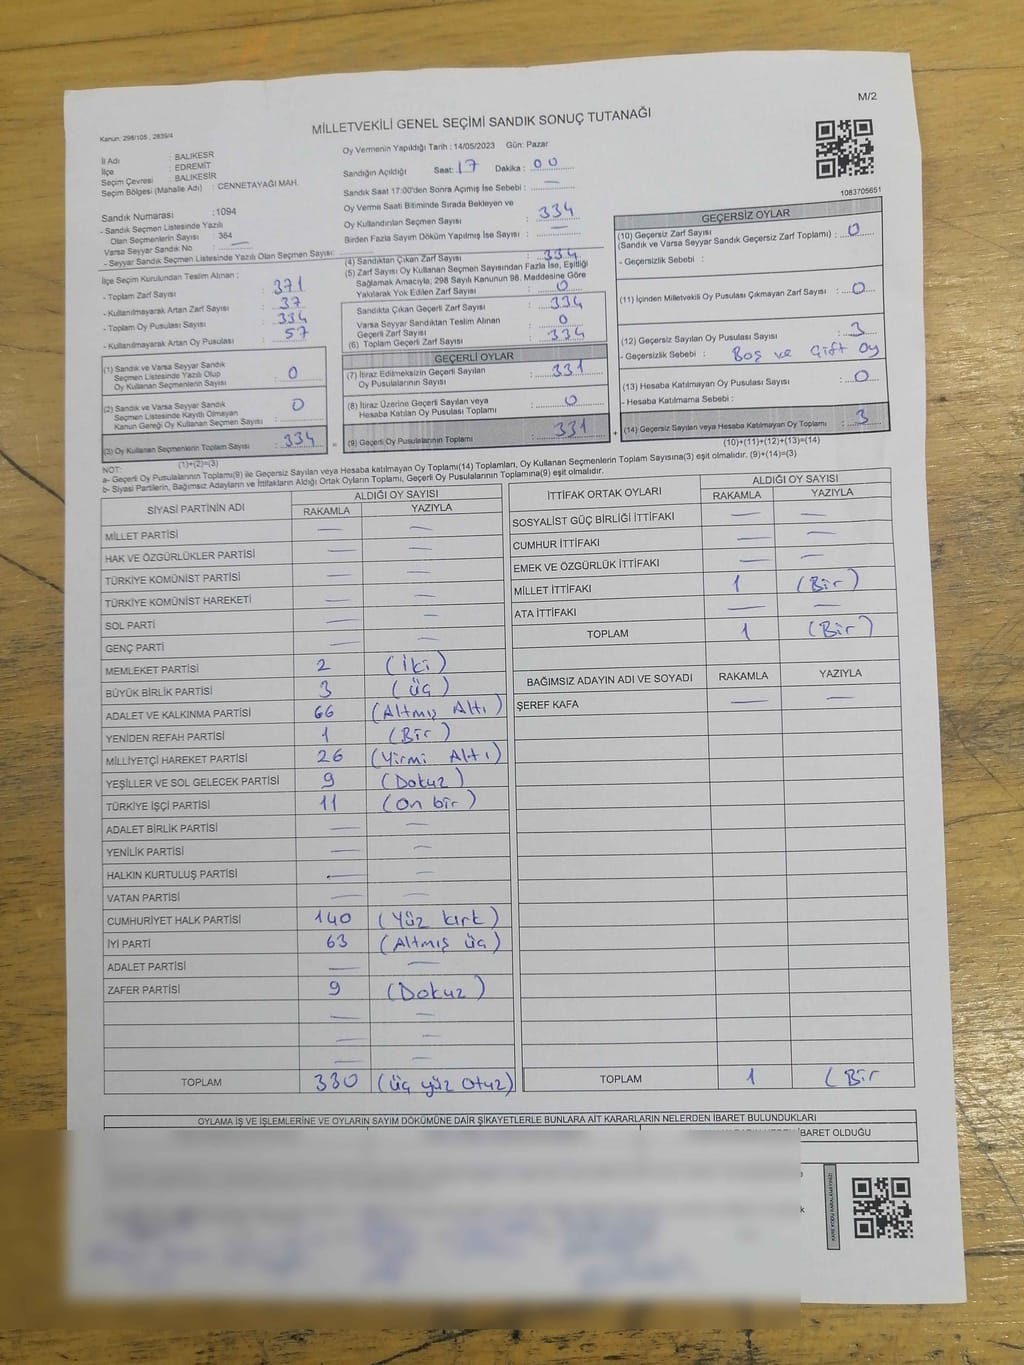 M/2
Kanun: 298/105 , 2839/4
MİLLETVEKİLİ GENEL SEÇİMİ SANDIK SONUÇ TUTANAĞI
İl Adı : BALIKESR
İlçe : EDREMİT
Seçim Çevresi : BALIKESİR
Seçim Bölgesi (Mahalle Adı) : CENNETAYAĞI MAH.
Sandık Numarası : 1094
- Sandık Seçmen Listesinde Yazılı
Olan Seçmenlerin Sayısı : 364
Varsa Seyyar Sandık No : —
- Seyyar Sandık Seçmen Listesinde Yazılı Olan Seçmen Sayısı:
İlçe Seçim Kurulundan Teslim Alınan :
- Toplam Zarf Sayısı : 371
- Kullanılmayarak Artan Zarf Sayısı : 37
- Toplam Oy Pusulası Sayısı : 334
- Kullanılmayarak Artan Oy Pusulası : 57
(1) Sandık ve Varsa Seyyar Sandık
Seçmen Listesinde Yazılı Olup
Oy Kullanan Seçmenlerin Sayısı : 0
(2) Sandık ve Varsa Seyyar Sandık
Seçmen Listesinde Kayıtlı Olmayan
Kanun Gereği Oy Kullanan Seçmen Sayısı : 0
(3) Oy Kullanan Seçmenlerin Toplam Sayısı : 334
(1)+(2)=(3)
Oy Vermenin Yapıldığı Tarih : 14/05/2023 Gün: Pazar
Sandığın Açıldığı Saat: 17 Dakika : 00
Sandık Saat 17:00'den Sonra Açımış İse Sebebi : —
Oy Verme Saati Bitiminde Sırada Bekleyen ve
Oy Kullandırılan Seçmen Sayısı : 334
Birden Fazla Sayım Döküm Yapılmış İse Sayısı : —
(4) Sandıktan Çıkan Zarf Sayısı : 334
(5) Zarf Sayısı Oy Kullanan Seçmen Sayısından Fazla İse, Eşitliği
Sağlamak Amacıyla; 298 Sayılı Kanunun 98. Maddesine Göre
Yakılarak Yok Edilen Zarf Sayısı : 0
Sandıkta Çıkan Geçerli Zarf Sayısı : 334
Varsa Seyyar Sandıktan Teslim Alınan
Geçerli Zarf Sayısı : 0
(6) Toplam Geçerli Zarf Sayısı : 334
GEÇERLİ OYLAR
(7) İtiraz Edilmeksizin Geçerli Sayılan
Oy Pusulalarının Sayısı : 331
(8) İtiraz Üzerine Geçerli Sayılan veya
Hesaba Katılan Oy Pusulası Toplamı : 0
= (9) Geçerli Oy Pusulalarının Toplamı : 331
1083705651
GEÇERSİZ OYLAR
(10) Geçersiz Zarf Sayısı
(Sandık ve Varsa Seyyar Sandık Geçersiz Zarf Toplamı) : 0
- Geçersizlik Sebebi :
(11) İçinden Milletvekili Oy Pusulası Çıkmayan Zarf Sayısı : 0
(12) Geçersiz Sayılan Oy Pusulası Sayısı : 3
- Geçersizlik Sebebi : Boş ve Çift Oy
(13) Hesaba Katılmayan Oy Pusulası Sayısı : 0
- Hesaba Katılmama Sebebi :
+ (14) Geçersiz Sayılan veya Hesaba Katılmayan Oy Toplamı : 3
(10)+(11)+(12)+(13)=(14)
NOT:
a- Geçerli Oy Pusulalarının Toplamı(9) ile Geçersiz Sayılan veya Hesaba katılmayan Oy Toplamı(14) Toplamları, Oy Kullanan Seçmenlerin Toplam Sayısına(3) eşit olmalıdır. (9)+(14)=(3)
b- Siyasi Partilerin, Bağımsız Adayların ve İttifakların Aldığı Ortak Oyların Toplamı, Geçerli Oy Pusulalarının Toplamına(9) eşit olmalıdır.
SİYASİ PARTİNİN ADI ALDIĞI OY SAYISI
RAKAMLA YAZIYLA
MİLLET PARTİSİ — —
HAK VE ÖZGÜRLÜKLER PARTİSİ — —
TÜRKİYE KOMÜNİST PARTİSİ — —
TÜRKİYE KOMÜNİST HAREKETİ — —
SOL PARTİ — —
GENÇ PARTİ — —
MEMLEKET PARTİSİ 2 (İki)
BÜYÜK BİRLİK PARTİSİ 3 (üç)
ADALET VE KALKINMA PARTİSİ 66 (Altmış Altı)
YENİDEN REFAH PARTİSİ 1 (Bir)
MİLLİYETÇİ HAREKET PARTİSİ 26 (Yirmi Altı)
YEŞİLLER VE SOL GELECEK PARTİSİ 9 (Dokuz)
TÜRKİYE İŞÇİ PARTİSİ 11 (On bir)
ADALET BİRLİK PARTİSİ — —
YENİLİK PARTİSİ — —
HALKIN KURTULUŞ PARTİSİ — —
VATAN PARTİSİ — —
CUMHURİYET HALK PARTİSİ 140 (Yüz kırk)
İYİ PARTİ 63 (Altmış üç)
ADALET PARTİSİ — —
ZAFER PARTİSİ 9 (Dokuz)
— —
— —
— —
TOPLAM 330 (üç yüz Otuz)
İTTİFAK ORTAK OYLARI ALDIĞI OY SAYISI
RAKAMLA YAZIYLA
SOSYALİST GÜÇ BİRLİĞİ İTTİFAKI — —
CUMHUR İTTİFAKI — —
EMEK VE ÖZGÜRLÜK İTTİFAKI — —
MİLLET İTTİFAKI 1 (Bir)
ATA İTTİFAKI — —
TOPLAM 1 (Bir)
BAĞIMSIZ ADAYIN ADI VE SOYADI RAKAMLA YAZIYLA
ŞEREF KAFA — —
TOPLAM 1 (Bir
OYLAMA İŞ VE İŞLEMLERİNE VE OYLARIN SAYIM DÖKÜMÜNE DAİR ŞİKAYETLERLE BUNLARA AİT KARARLARIN NELERDEN İBARET BULUNDUKLARI
İBARET OLDUĞU
KARE KODU KARALAMAYINIZ!